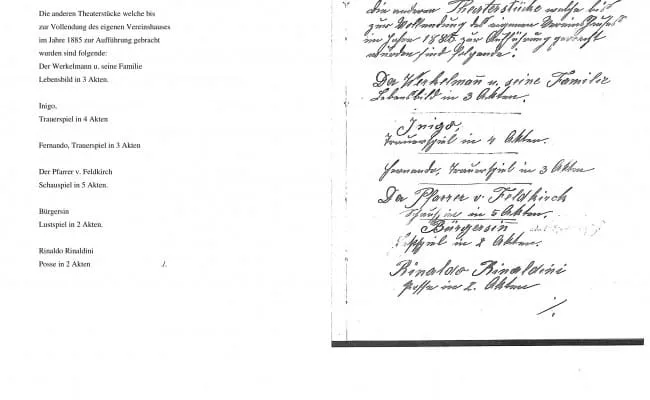 Die anderen Theaterstücke welche bis
zur Vollendung des eigenen Vereinshauses
im Jahre 1885 zur Aufführung gebracht
wurden sind folgende:
Der Werkelmann u. seine Familie
Lebensbild in 3 Akten.
Inigo,
Trauerspiel in 4 Akten
Fernando, Trauerspiel in 3 Akten
Der Pfarrer v. Feldkirch
Schauspiel in 5 Akten.
Bürgersin
Lustspiel in 2 Akten.
Rinaldo Rinaldini
Posse in 2 Akten ./.
die anderen Theaterstücke welche bis
zur Vollendung des eigenen Vereinshauses
im Jahre 1885 zur Aufführung gebracht
wurden sind folgende:
Der Werkelmann u. seine Familie
Lebensbild in 3 Akten.
Inigo,
Trauerspiel in 4 Akten.
Fernando, Trauerspiel in 3 Akten
Der Pfarrer v. Feldkirch
Schauspiel in 5 Akten.
Bürgersin
Lustspiel in 2 Akten.
Rinaldo Rinaldini
Posse in 2. Akten
./.